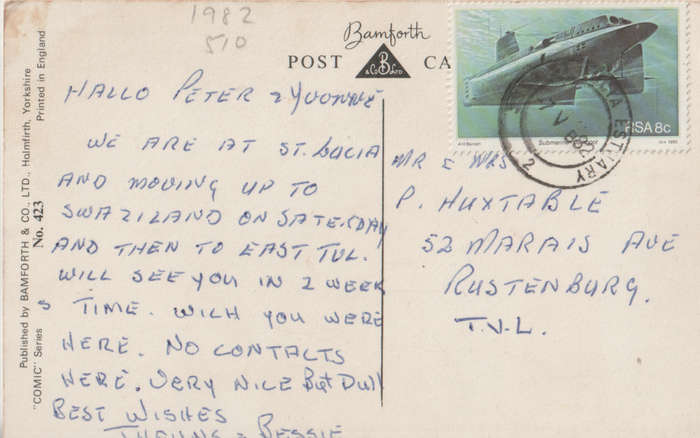 1982
510
Bamforth
POST CA
B
& Co LTD
HALLO PETER & YVONNE
WE ARE AT ST. LUCIA
AND MOVING UP TO
SWAZILAND ON SATERSDAY
AND THEN TO EAST TVL.
WILL SEE YOU IN 2 WEEK
S TIME. WICH YOU WERE
HERE. NO CONTACTS
HERE. VERY NICE But Dull
BEST WISHES
& BESSIE
MR & MRS
P. HUXTABLE
52 MARAIS AVE
RUSTENBURG.
T.V.L.
RSA 8c
Submarine
ESTUARY
2
Published by BAMFORTH & CO., LTD., Holmfirth, Yorkshire
"COMIC" Series No. 423 Printed in England